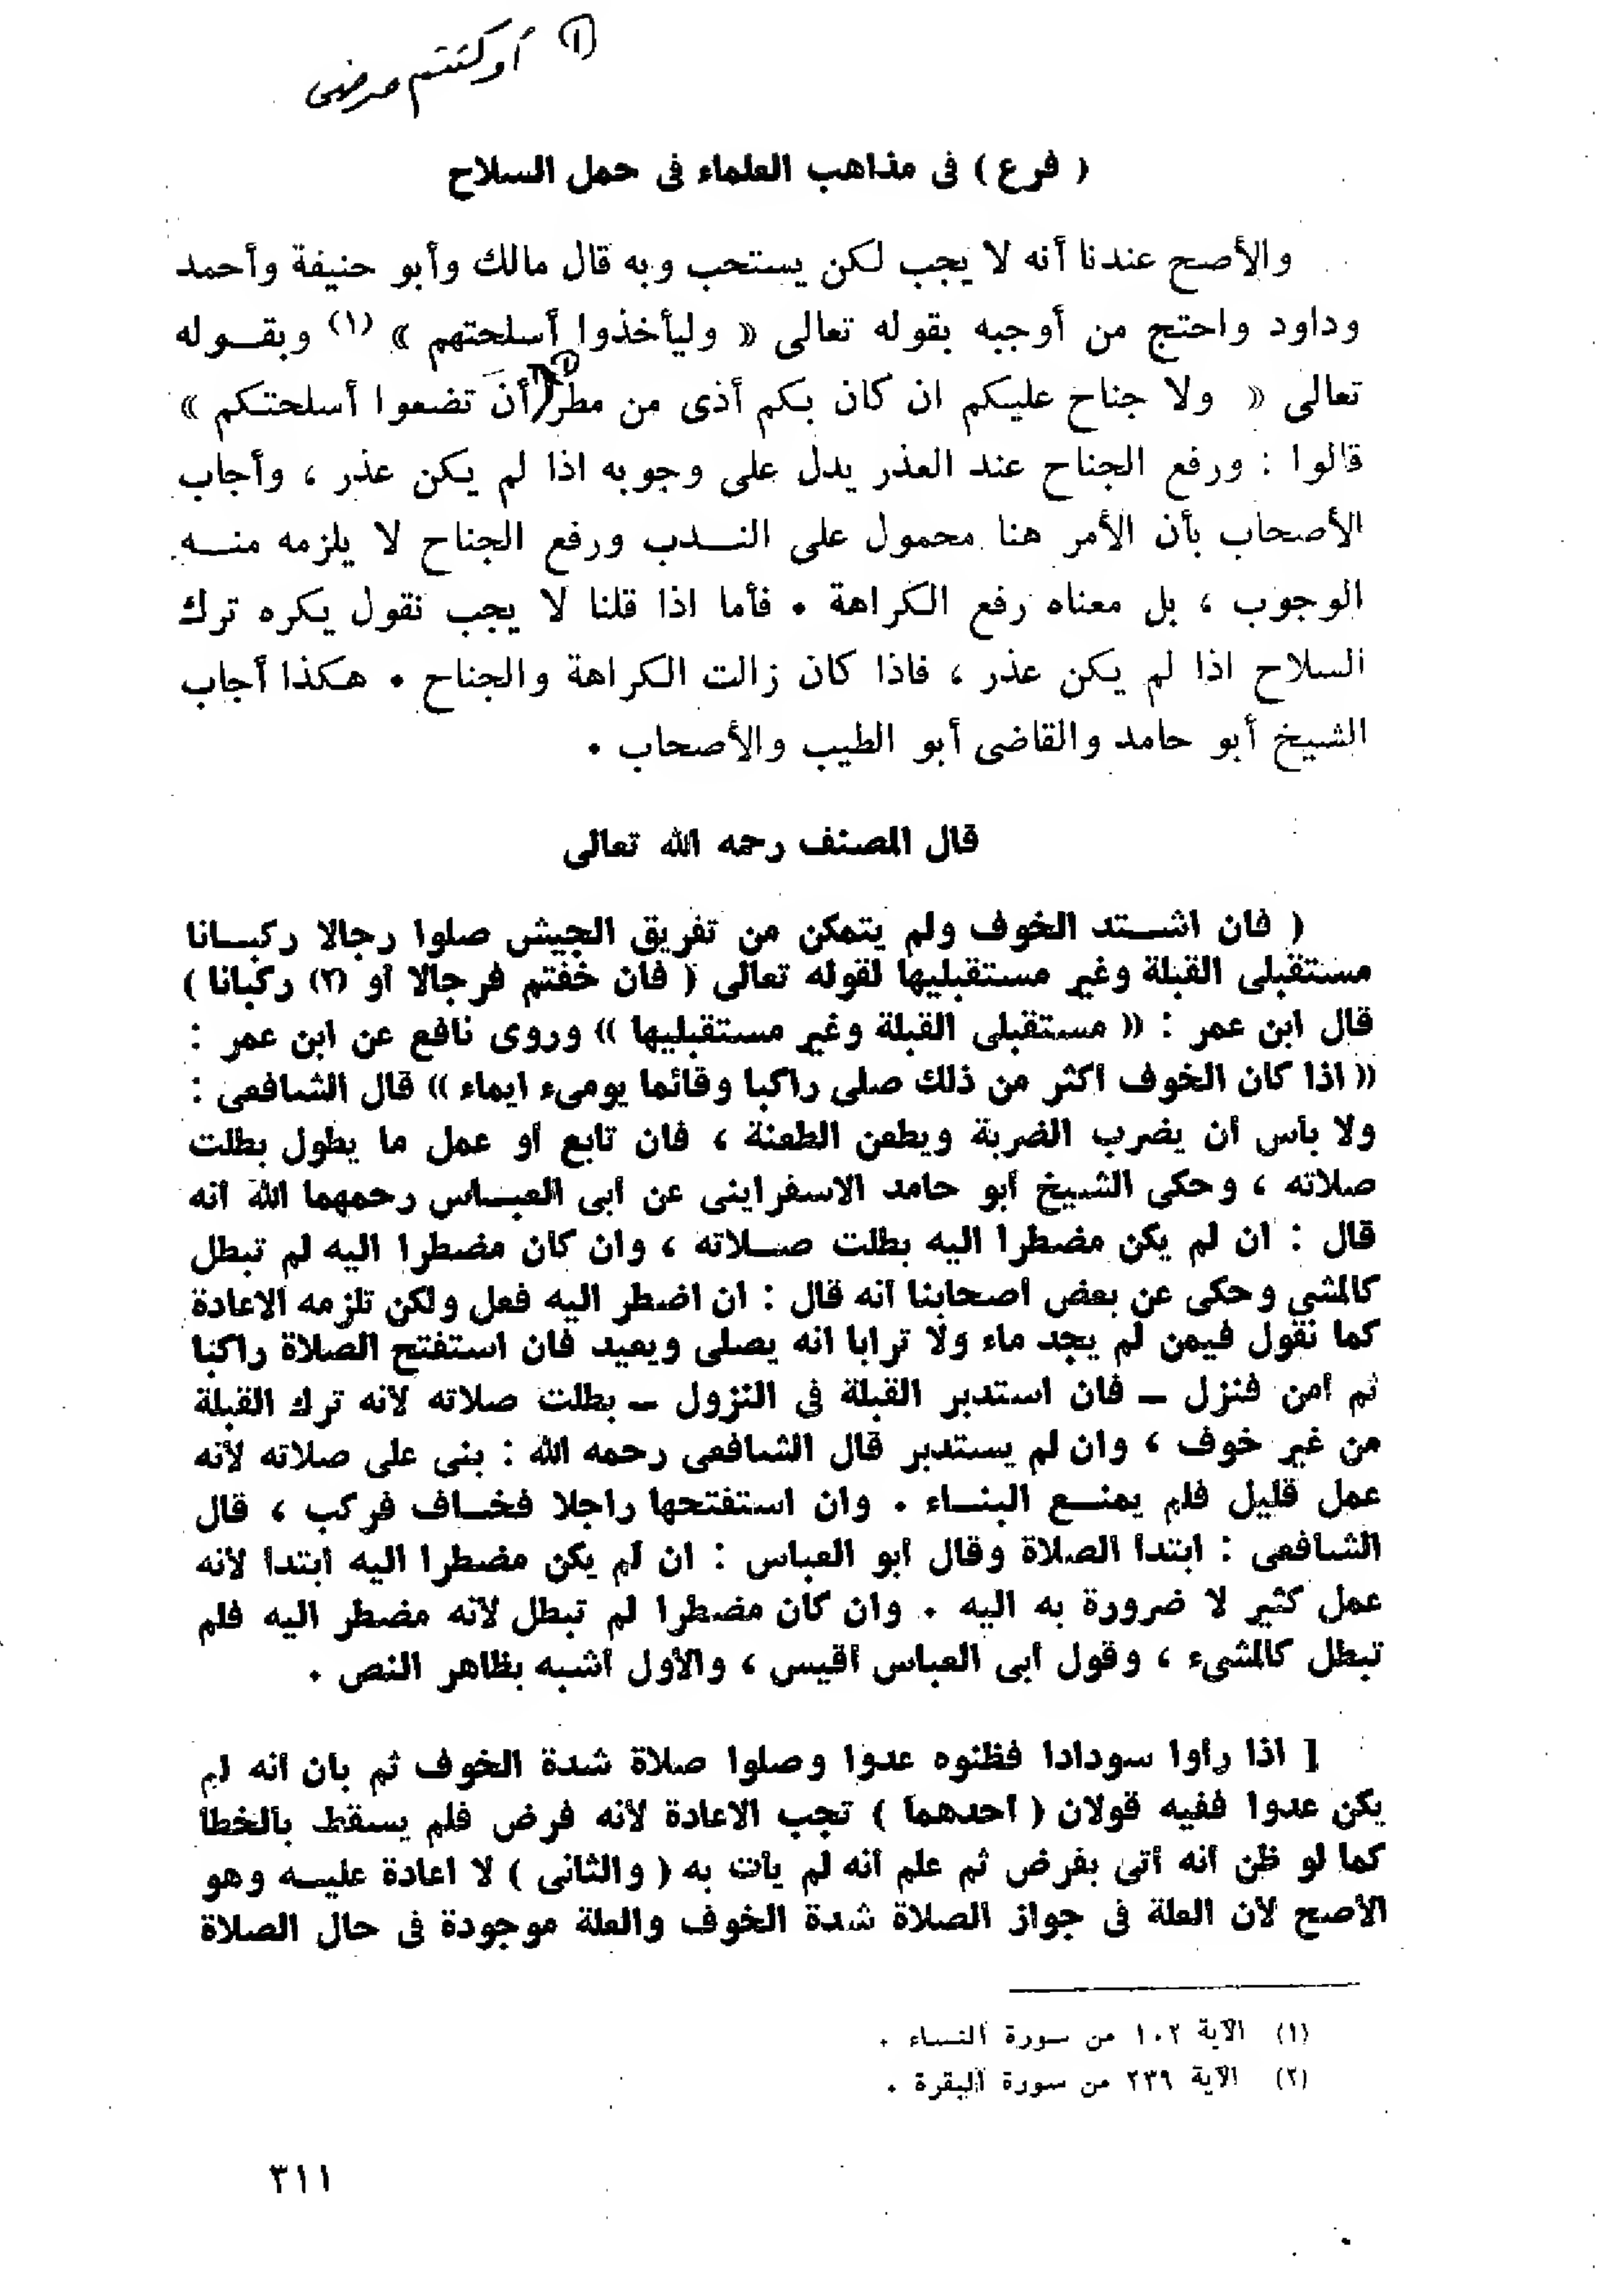 (١) أو كنتم مرضى
( فرع ) فى مذاهب العلماء فى حمل السلاح
والأصح عندنا أنه لا يجب لكن يستحب وبه قال مالك وأبو حنيفة وأحمد
وداود واحتج من أوجبه بقوله تعالى « وليأخذوا أسلحتهم » (١) وبقـــوله
تعالى « ولا جناح عليكم ان كان بكم أذى من مطر (١) أن تضعوا أسلحتكم »
قالوا : ورفع الجناح عند العذر يدل على وجوبه اذا لم يكن عذر ، وأجاب
الأصحاب بأن الأمر هنا محمول على النـــدب ورفع الجناح لا يلزمه منـــه
الوجوب ، بل معناه رفع الكراهة • فأما اذا قلنا لا يجب نقول يكره ترك
السلاح اذا لم يكن عذر ، فاذا كان زالت الكراهة والجناح • هكذا أجاب
الشيخ أبو حامد والقاضى أبو الطيب والأصحاب •
قال المصنف رحمه الله تعالى
( فان اشـــتد الخوف ولم يتمكن من تفريق الجيش صلوا رجالا ركبـــانا
مستقبلى القبلة وغير مستقبليها لقوله تعالى ( فان خفتم فرجالا أو (٢) ركبانا )
قال ابن عمر : « مستقبلى القبلة وغير مستقبليها » وروى نافع عن ابن عمر :
« اذا كان الخوف أكثر من ذلك صلى راكبا وقائما يومىء ايماء » قال الشافعى :
ولا بأس أن يضرب الضربة ويطعن الطعنة ، فان تابع أو عمل ما يطول بطلت
صلاته ، وحكى الشيخ أبو حامد الاسفراينى عن أبى العبـــاس رحمهما الله أنه
قال : ان لم يكن مضطرا اليه بطلت صـــلاته ، وان كان مضطرا اليه لم تبطل
كالمشى وحكى عن بعض أصحابنا أنه قال : ان اضطر اليه فعل ولكن تلزمه الاعادة
كما نقول فيمن لم يجد ماء ولا ترابا انه يصلى ويعيد فان استفتح الصلاة راكبا
ثم أمن فنزل ــ فان استدبر القبلة فى النزول ــ بطلت صلاته لأنه ترك القبلة
من غير خوف ، وان لم يستدبر قال الشافعى رحمه الله : بنى على صلاته لأنه
عمل قليل فلم يمنـــع البنـــاء • وان استفتحها راجلا فخـــاف فركب ، قال
الشافعى : ابتدأ الصلاة وقال أبو العباس : ان لم يكن مضطرا اليه ابتدأ لأنه
عمل كثير لا ضرورة به اليه • وان كان مضطرا لم تبطل لأنه مضطر اليه فلم
تبطل كالمشىء ، وقول أبى العباس أقيس ، والأول أشبه بظاهر النص •
[ اذا رأوا سودادا فظنوه عدوا وصلوا صلاة شدة الخوف ثم بان أنه لم
يكن عدوا ففيه قولان ( أحدهما ) تجب الاعادة لأنه فرض فلم يسقط بالخطأ
كما لو ظن أنه أتى بفرض ثم علم أنه لم يأت به ( والثانى ) لا اعادة عليـــه وهو
الأصح لأن العلة فى جواز الصلاة شدة الخوف والعلة موجودة فى حال الصلاة
(١) الآية ١٠٢ من سورة النساء •
(٢) الآية ٢٣٩ من سورة البقرة •
٣١١